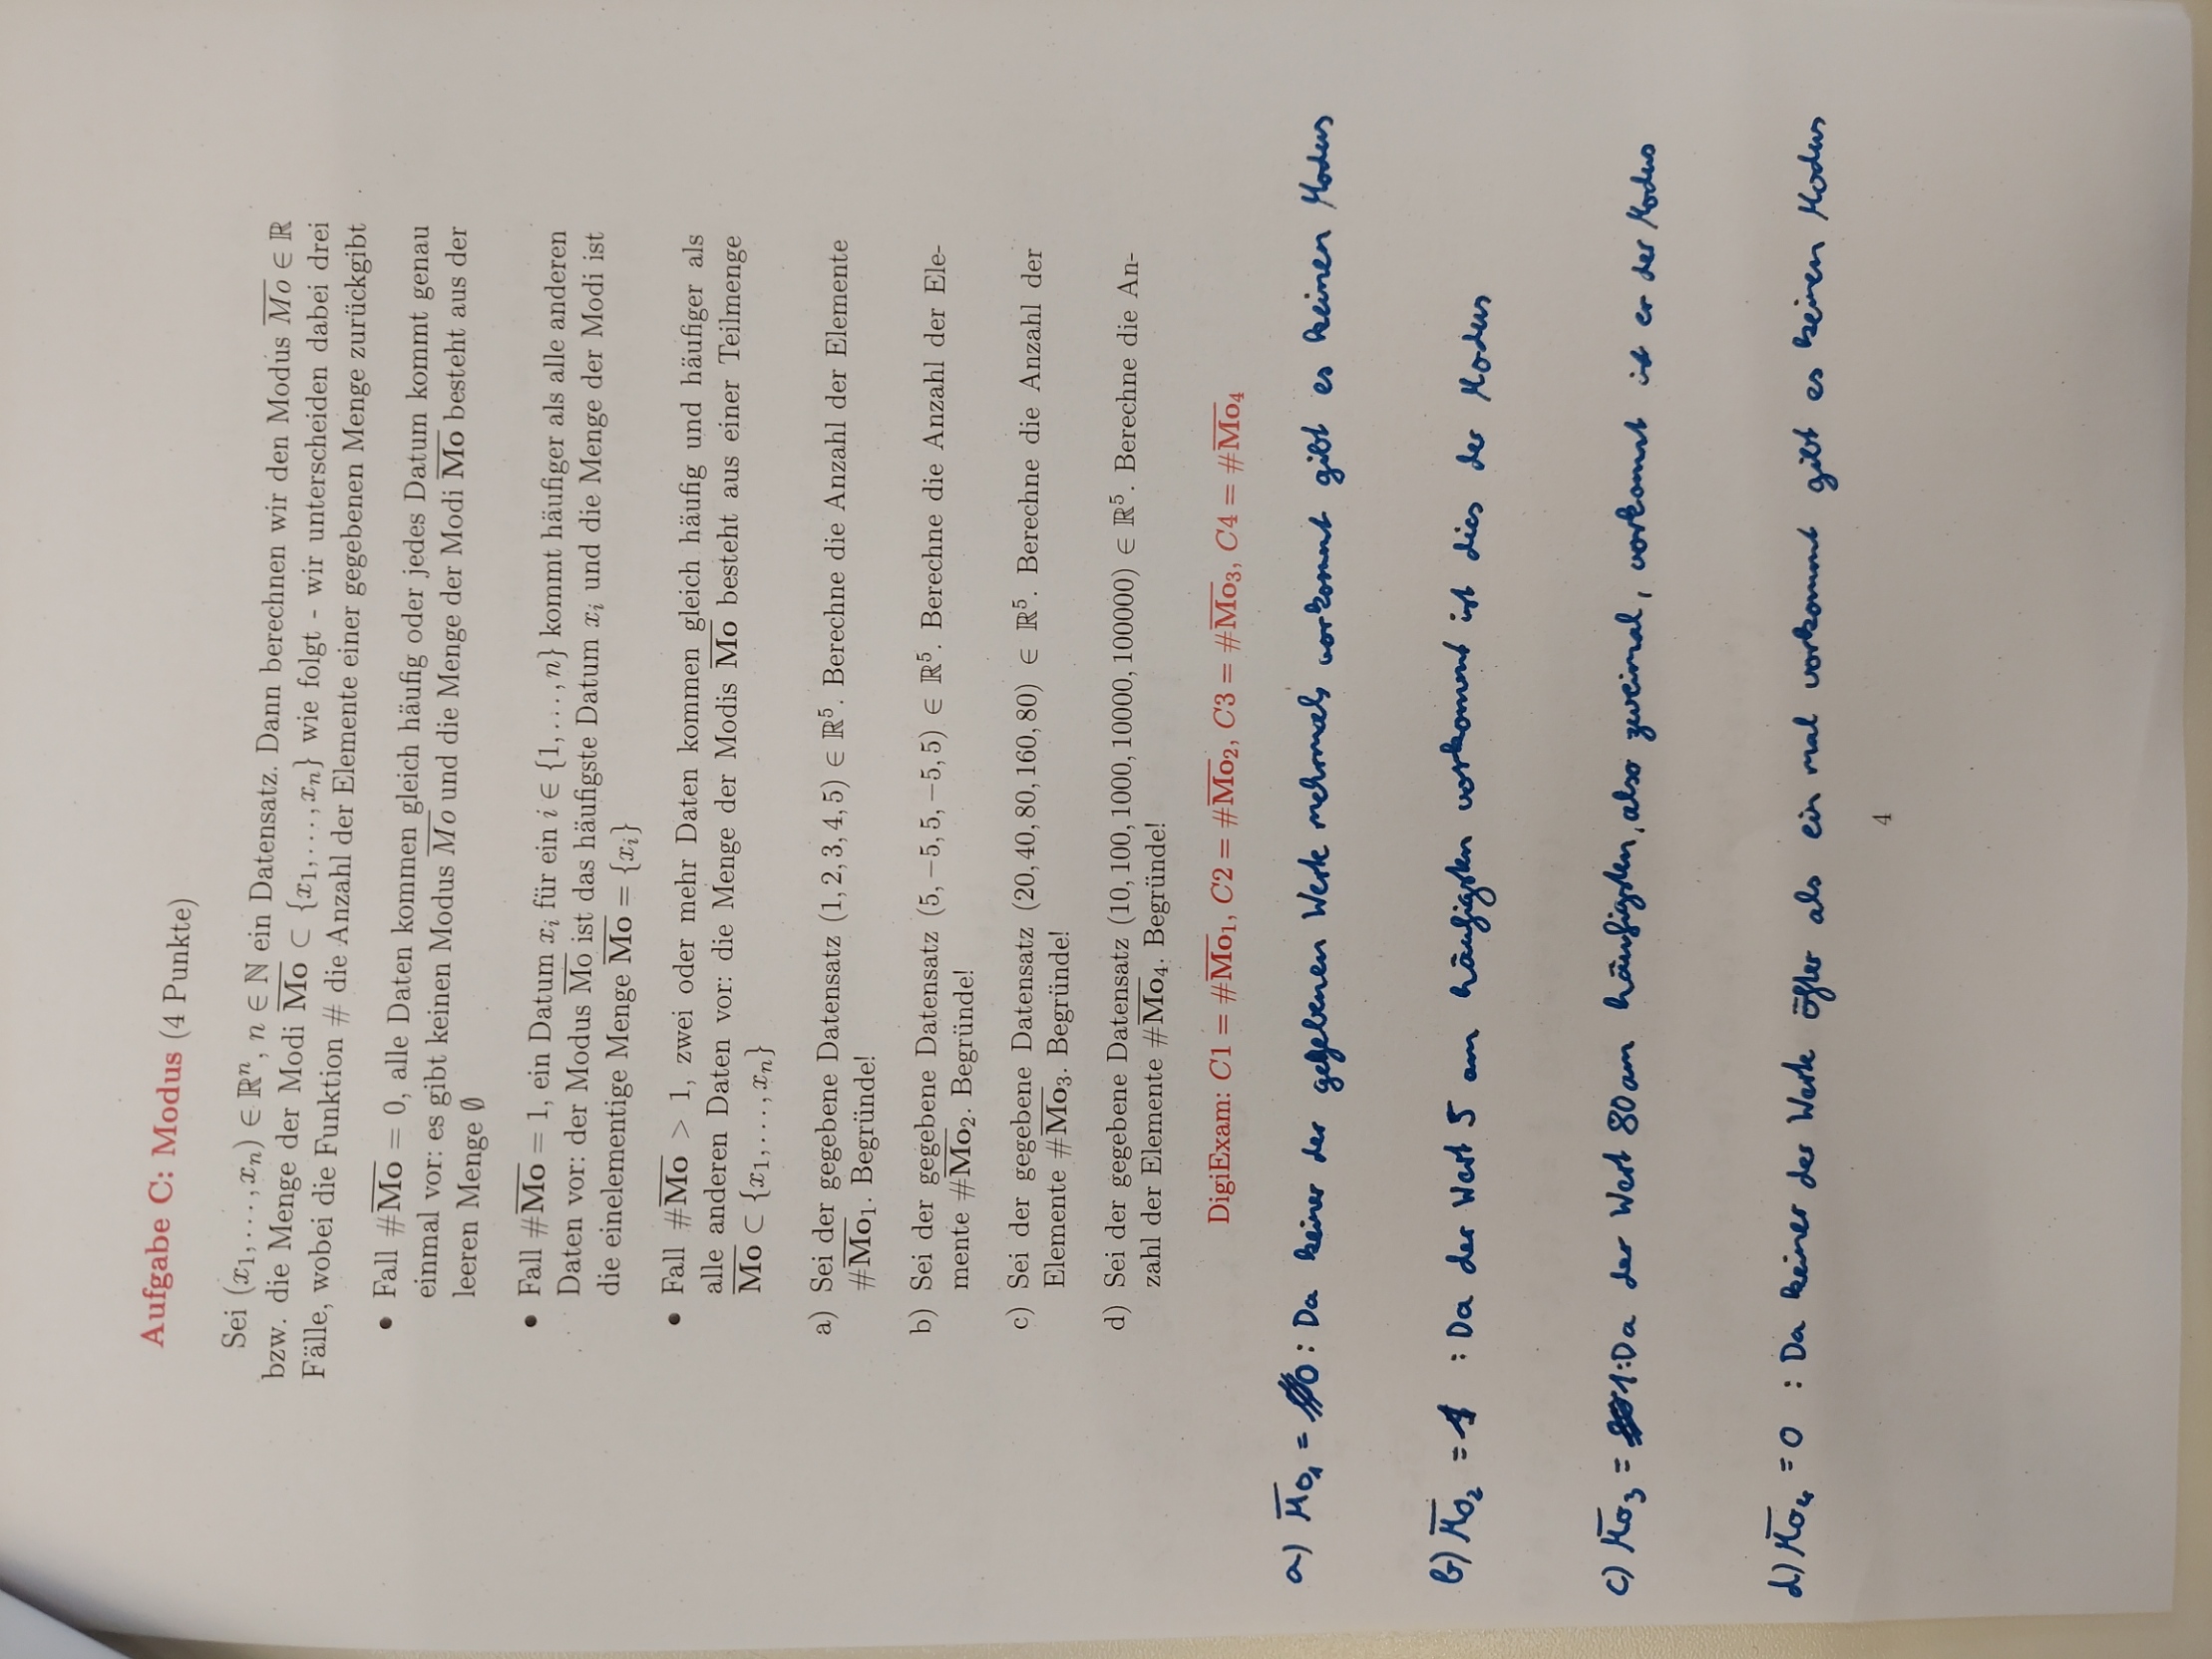 Aufgabe C: Modus (4 Punkte)
Sei (x₁, . . . , xₙ) ∈ ℝⁿ, n ∈ ℕ ein Datensatz. Dann berechnen wir den Modus M̅o̅ ∈ ℝ
bzw. die Menge der Modi M̅o̅ ⊂ {x₁, . . . , xₙ} wie folgt - wir unterscheiden dabei drei
Fälle, wobei die Funktion # die Anzahl der Elemente einer gegebenen Menge zurückgibt
• Fall #M̅o̅ = 0, alle Daten kommen gleich häufig oder jedes Datum kommt genau
einmal vor: es gibt keinen Modus M̅o̅ und die Menge der Modi M̅o̅ besteht aus der
leeren Menge ∅
• Fall #M̅o̅ = 1, ein Datum xᵢ für ein i ∈ {1, . . . , n} kommt häufiger als alle anderen
Daten vor: der Modus M̅o̅ ist das häufigste Datum xᵢ und die Menge der Modi ist
die einelementige Menge M̅o̅ = {xᵢ}
• Fall #M̅o̅ > 1, zwei oder mehr Daten kommen gleich häufig und häufiger als
alle anderen Daten vor: die Menge der Modis M̅o̅ besteht aus einer Teilmenge
M̅o̅ ⊂ {x₁, . . . , xₙ}
a) Sei der gegebene Datensatz (1, 2, 3, 4, 5) ∈ ℝ⁵. Berechne die Anzahl der Elemente
#M̅o̅₁. Begründe!
b) Sei der gegebene Datensatz (5, −5, 5, −5, 5) ∈ ℝ⁵. Berechne die Anzahl der Ele-
mente #M̅o̅₂. Begründe!
c) Sei der gegebene Datensatz (20, 40, 80, 160, 80) ∈ ℝ⁵. Berechne die Anzahl der
Elemente #M̅o̅₃. Begründe!
d) Sei der gegebene Datensatz (10, 100, 1000, 10000, 100000) ∈ ℝ⁵. Berechne die An-
zahl der Elemente #M̅o̅₄. Begründe!
DigiExam: C1 = #M̅o̅₁, C2 = #M̅o̅₂, C3 = #M̅o̅₃, C4 = #M̅o̅₄
a) M̅o̅₁ = 0 : Da keiner der gegebenen Werte mehrmals vorkommt gibt es keinen Modus
b) M̅o̅₂ = 1 : Da der Wert 5 am häufigsten vorkommt ist dies der Modus
c) M̅o̅₃ = 1: Da der Wert 80 am häufigsten, also zweimal, vorkommt ist er der Modus
d) M̅o̅₄ = 0 : Da keiner der Werte öfter als ein mal vorkommt gibt es keinen Modus
4